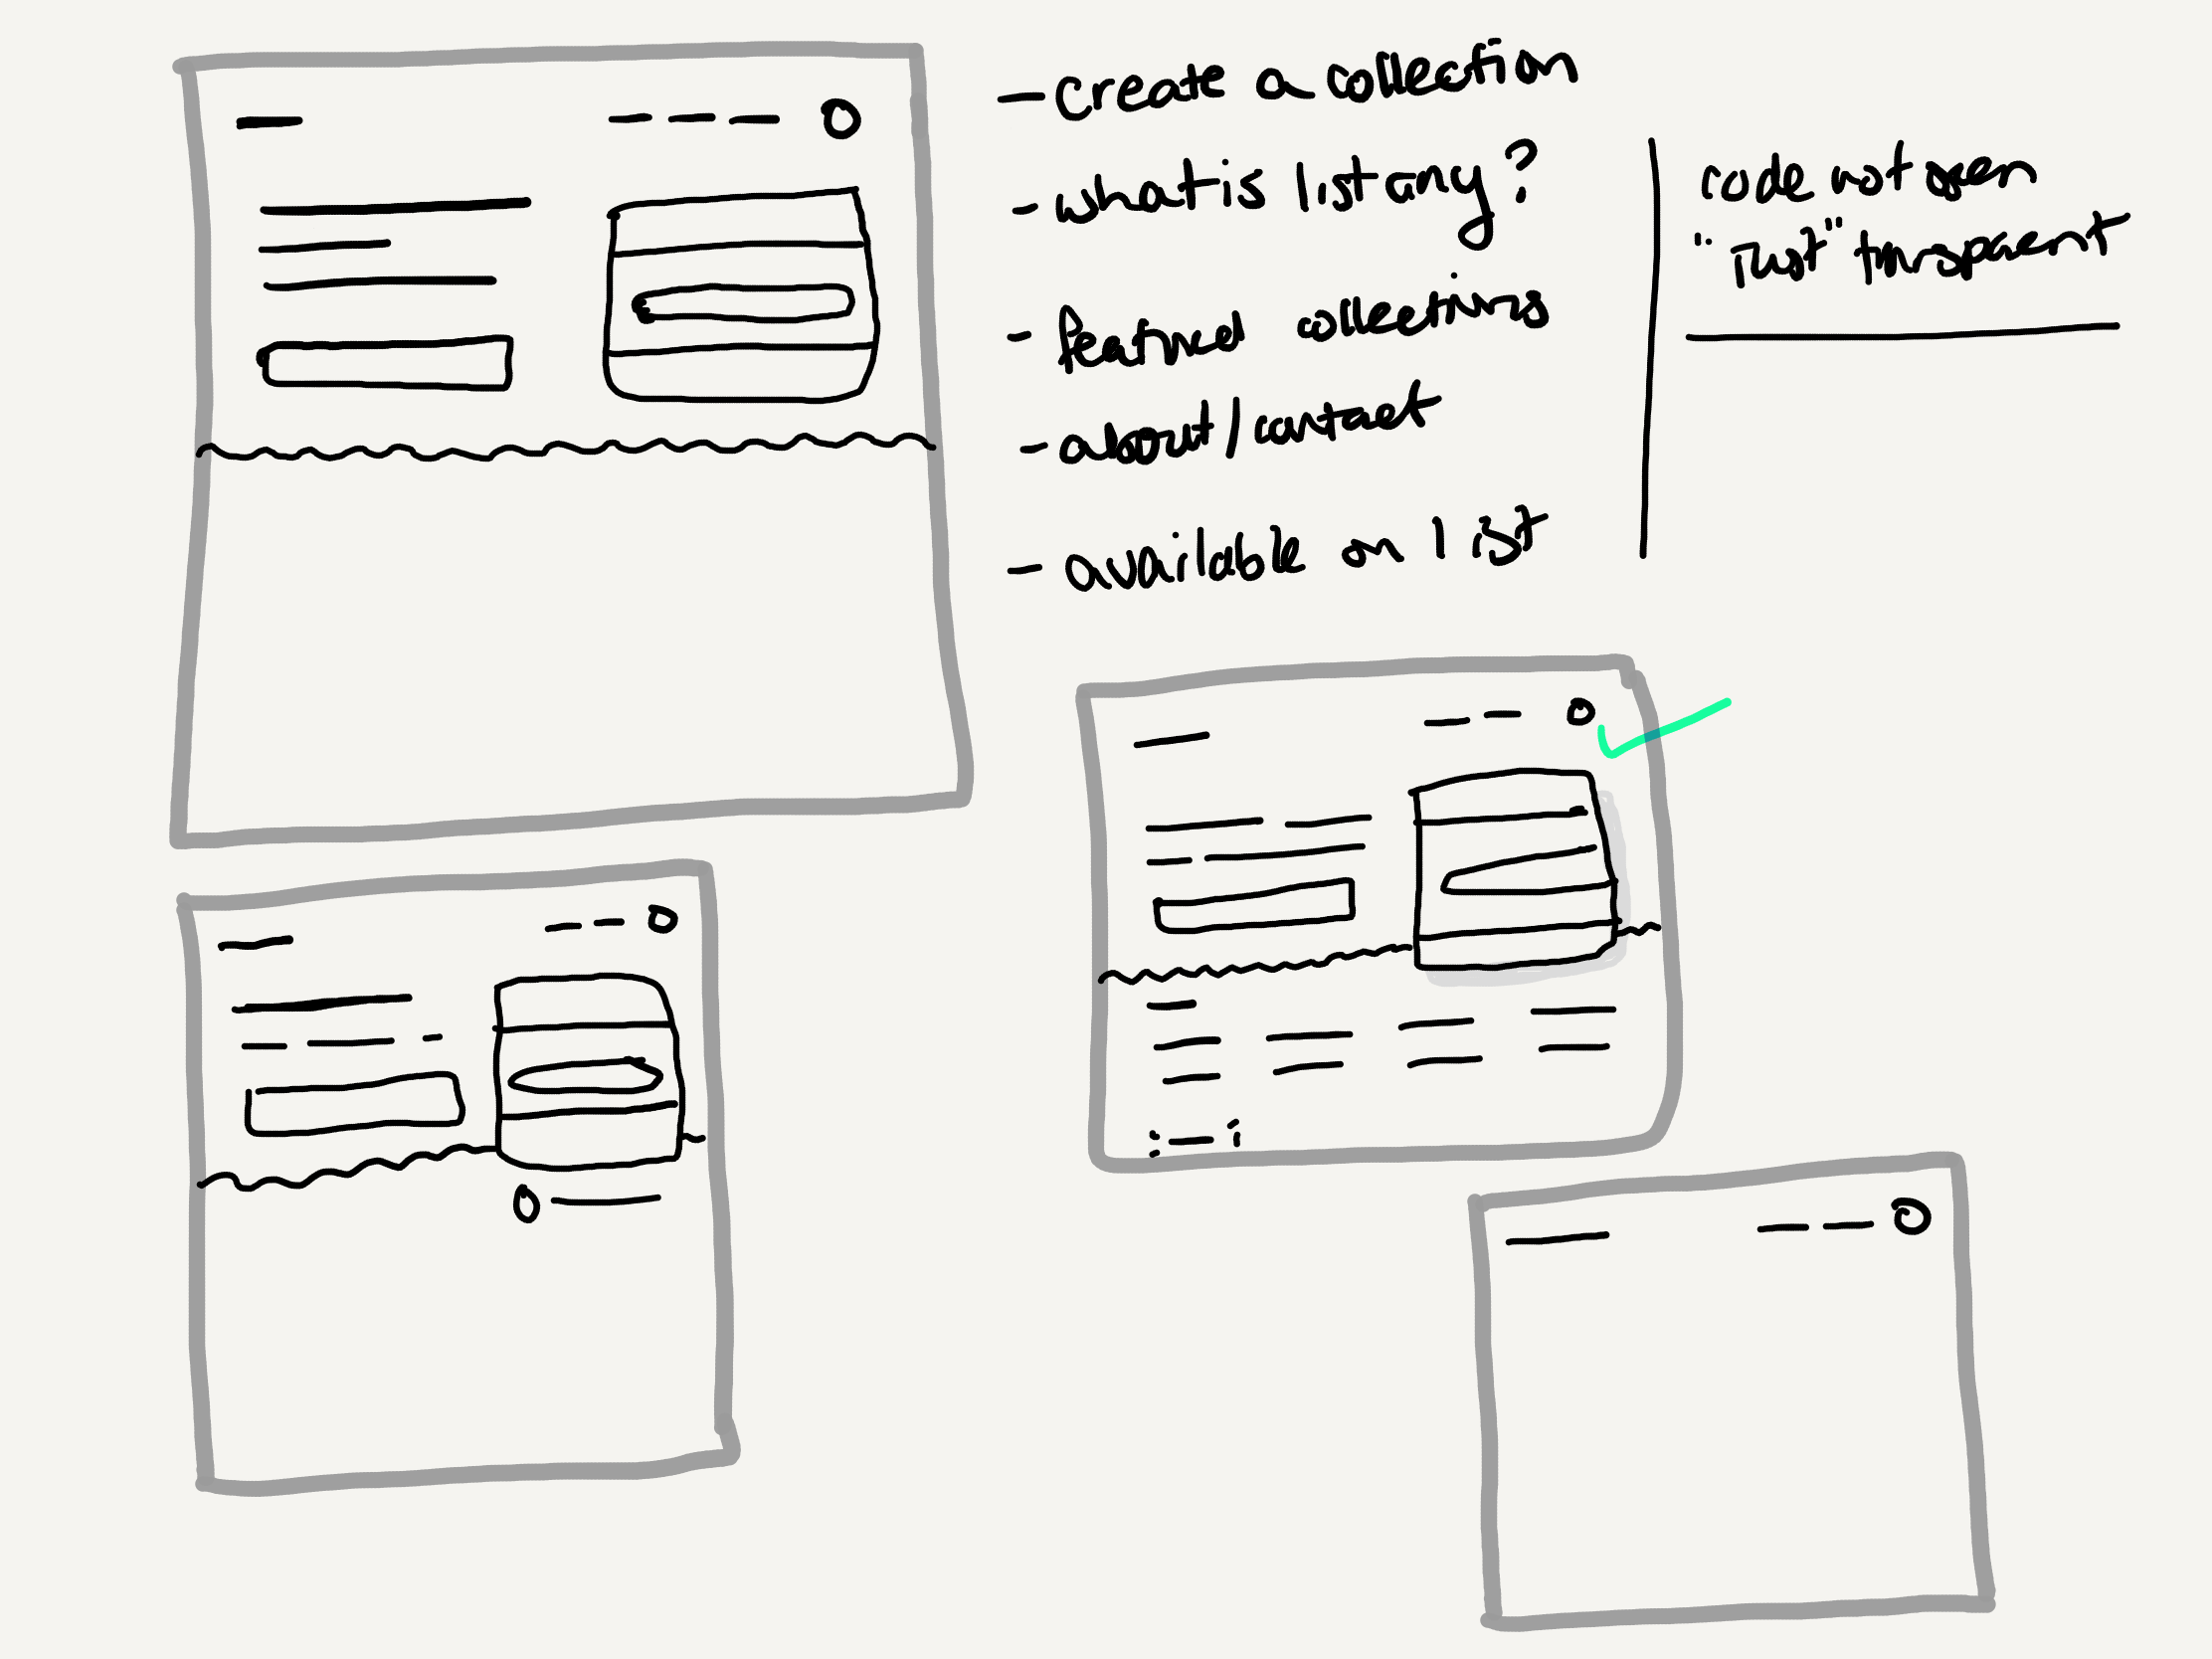 - create a collection
- what is listany?
- featured collections
- about/contact
- available on list
code not open
"just" transparent